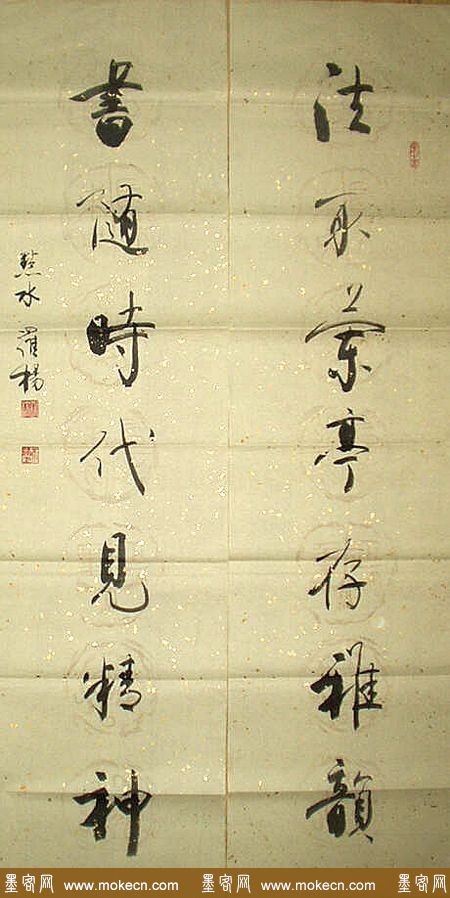 法取蘭亭存雅韻
書隨時代見精神
黟水 羅楊
墨客网 www.mokecn.com 墨客网 www.mokecn.com 墨客网